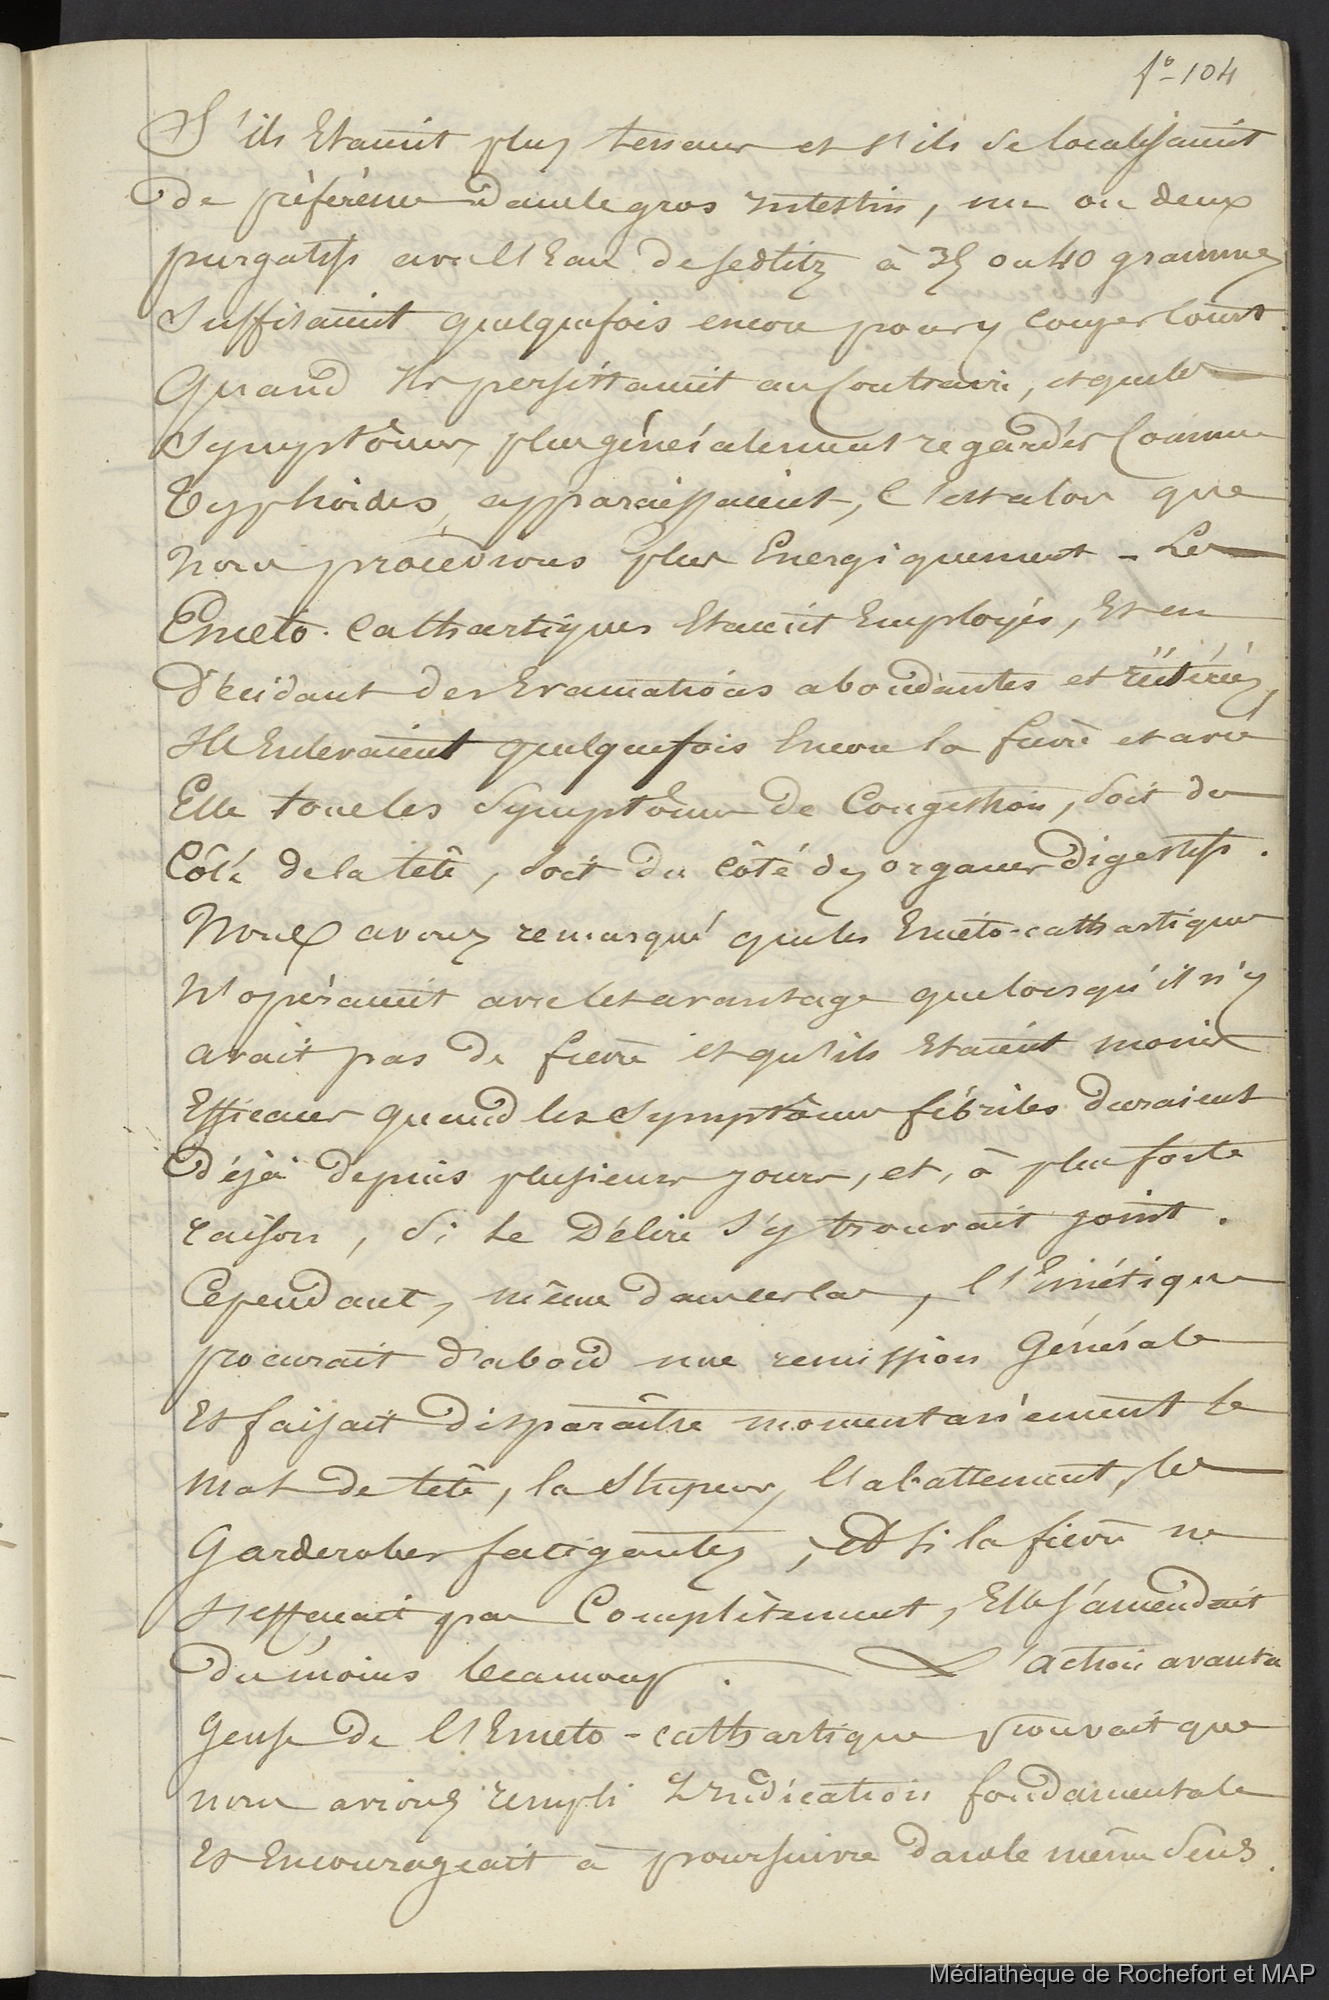 f° 104
S'ils Etaient plus tenaces et s'ils se localisaient
de préférence dans le gros intestin, un ou deux
purgatifs avec l'Eau de sedlitz à 35 ou 40 grammes
suffisaient quelquefois encore pour y couper court.
Quand ils persistaient au Contraire, et que les
symptômes plus généralement regardés Comme
Typhoïdes, apparaissaient, C'est alors que
nous procédions plus Energiquement - Les
Eméto-Cathartiques Etaient Employés, Et en
décidant des Evacuations abondantes et réitérées,
Ils Enlevaient quelquefois Encore la fièvre et avec
Elle tous les symptômes de Congestion, soit du
Côté de la tête, soit du côté des organes digestifs.
Nous avons remarqué que les Eméto-cathartiques
N'opéraient avec cet avantage que lorsqu'il n'y
avait pas de fièvre et qu'ils Etaient moins
Efficaces quand les symptômes fébriles duraient
Déjà depuis plusieurs jours, et, à plus forte
raison, si le Délire s'y trouvait joint.
Cependant, même dans ces cas, l'Emétique
procurait d'abord une remission Générale
Et faisait disparaître momentanément le
Mal de tête, la stupeur, l'abattement, les
Garderobes fatigantes, Et si la fièvre ne
s'effaçait pas Complètement, Elle s'amendait
Du moins beaucoup. L'action avanta
Geuse de l'Eméto-cathartique prouvait que
nous avions rempli L'Indication fondamentale
Et Encourageait à poursuivre dans le même sens.
Médiathèque de Rochefort et MAP